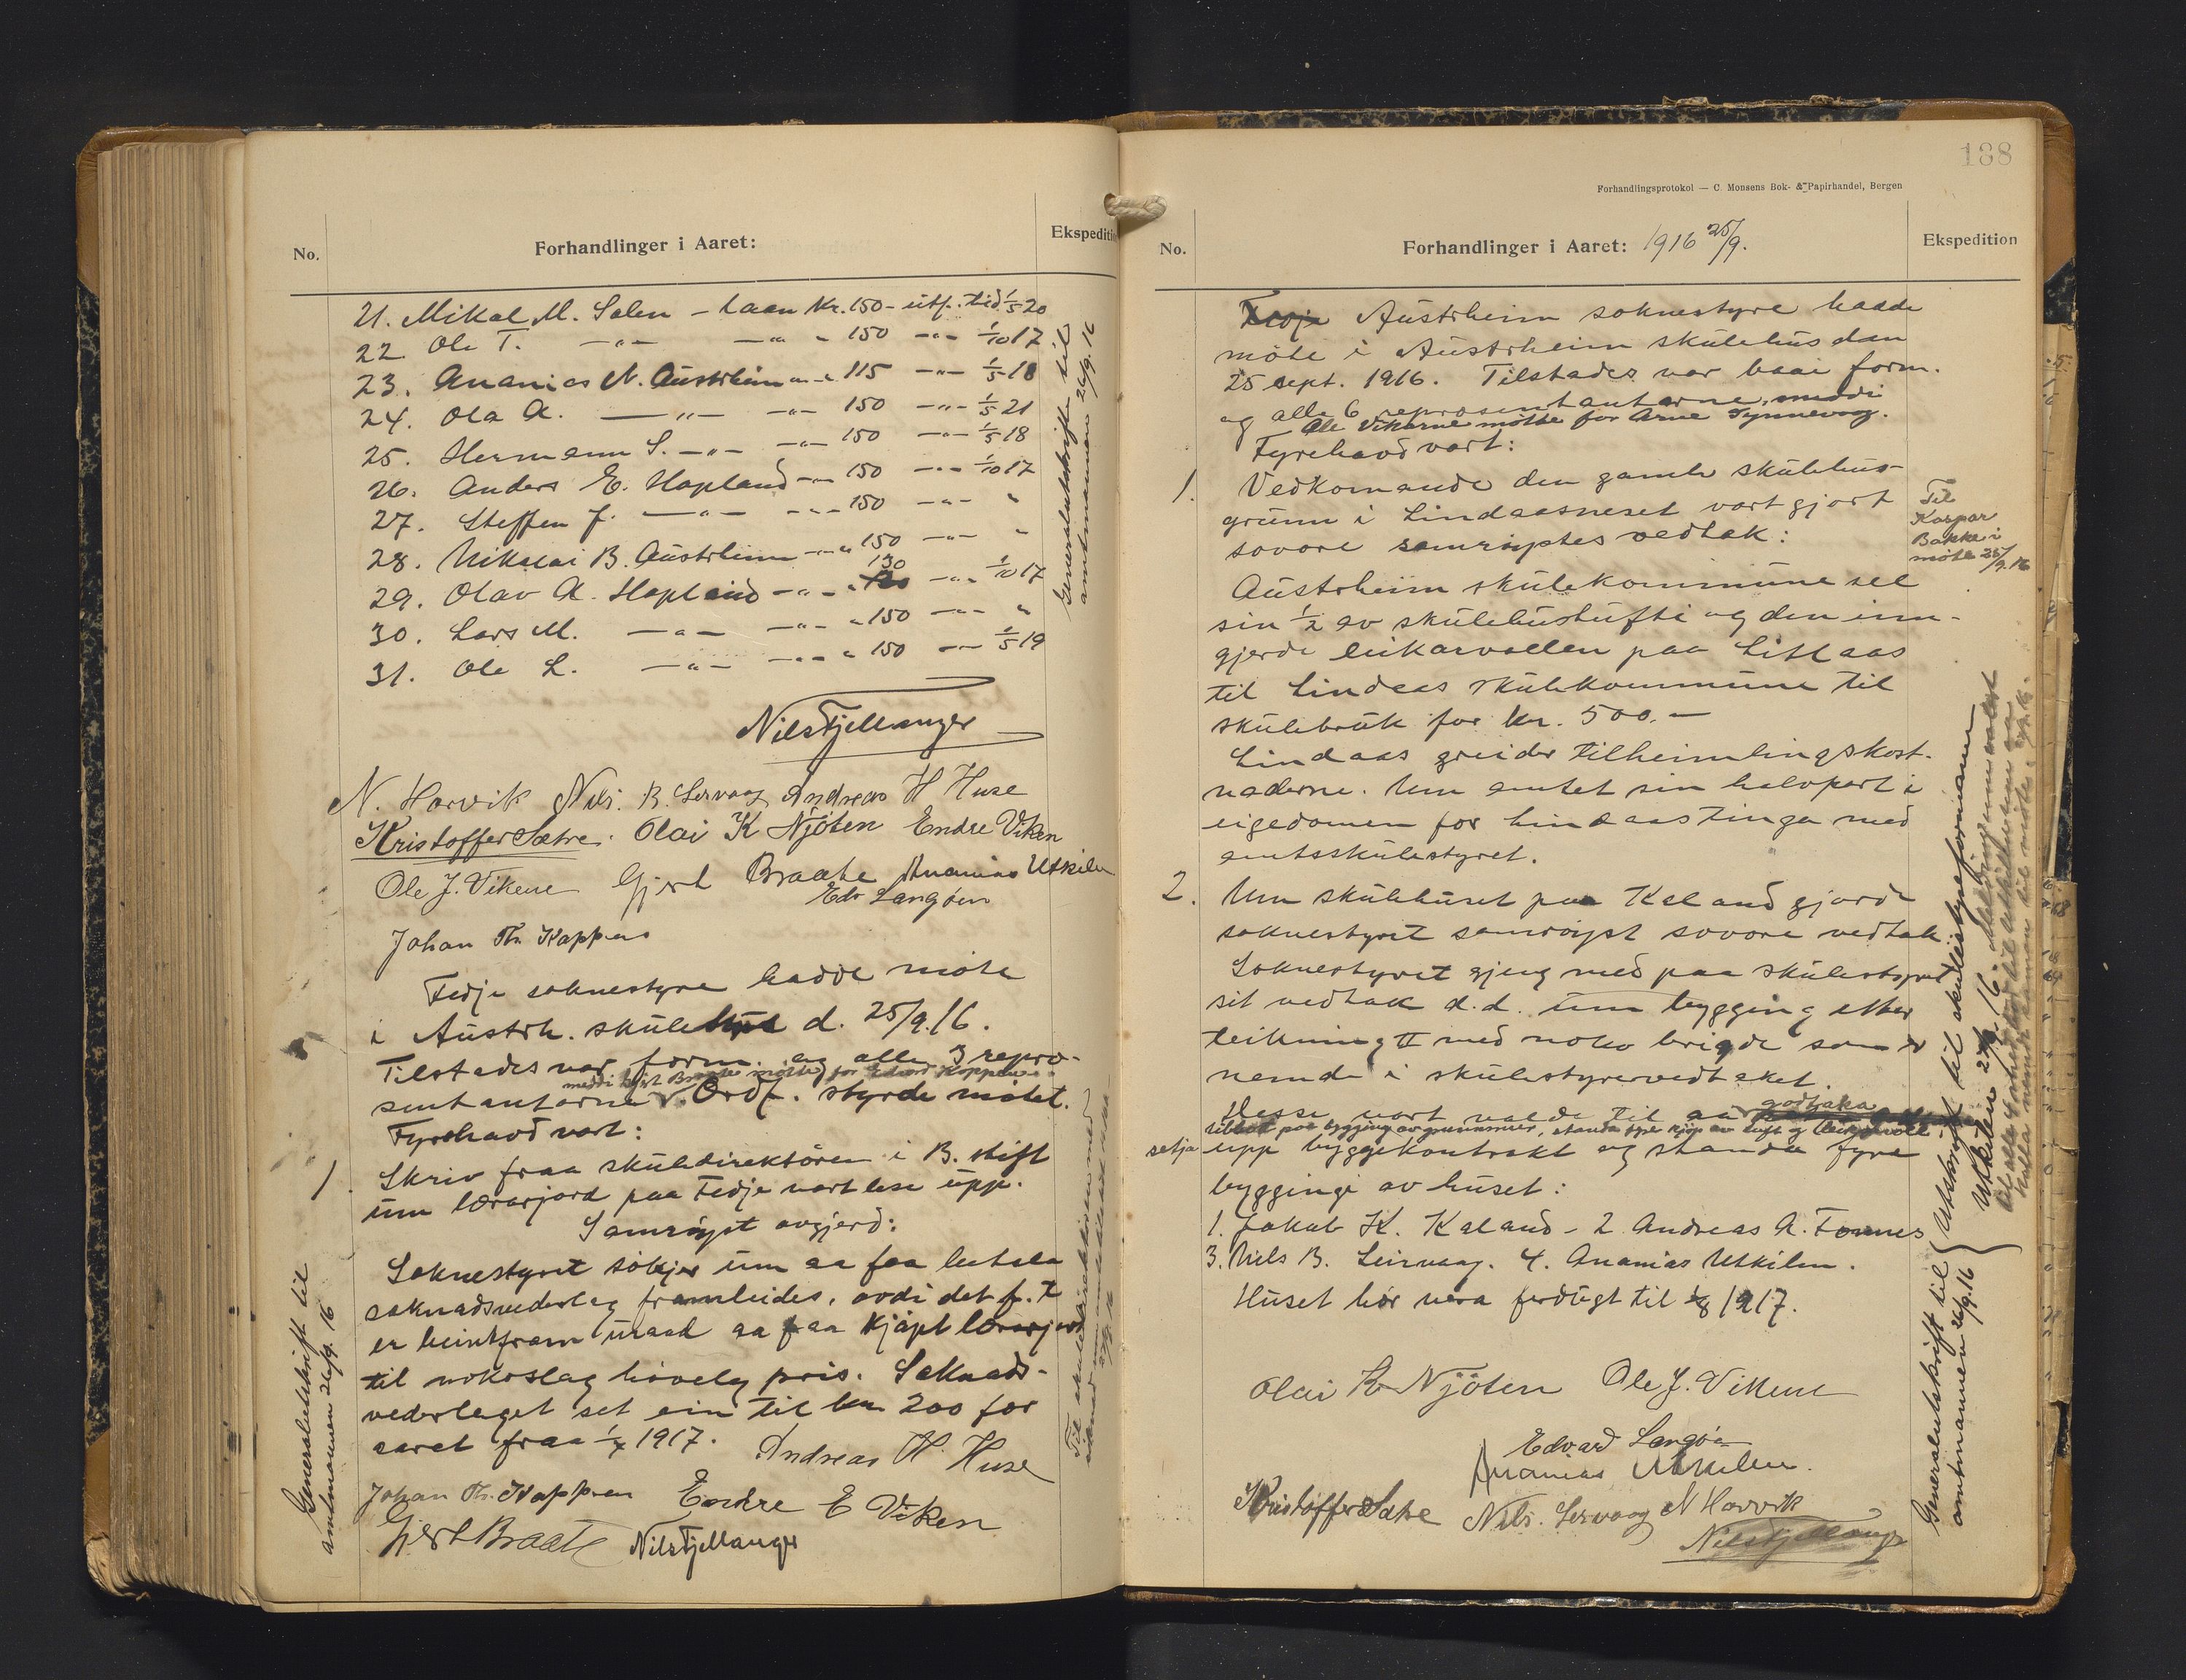 No.
Forhandlinger i Aaret:
Ekspedition
21. Mikal M. Solen – laan Kr. 150 – utp. tid 1/5 20
22. Ole T. –„– –„– „ 150 –„– 1/10 17
23. Ananias N. Austrheim –„– 115 –„– 1/5 18
24. Ola A. –„– –„– 150 –„– 1/5 21
25. Hermann S. –„– –„– 150 –„– 1/5 18
26. Anders E. Hopland –„– 150 –„– 1/10 17
27. Steffen J. –„– –„– 150 –„– „
28. Nikolai B. Austrheim –„– „ 150 –„– „
29. Olav A. Hopland –„– „ 130 –„– 1/10 17
30. Lars M. –„– –„– „ 150 –„– „
31. Ole L. –„– –„– „ 150 –„– 1/5 19
Generalutskrift til
amtmannen 26/9. 16
Nils Fjellanger
N. Horvik Nils. B. Lervaag Andreas H Huse
Kristoffer Sætre. Olai K Njöten Endre Viken
Ole J. Vikene Gjert Braate Ananias Utkilen
Edv Langöen
Johan Th. Koppen
Fedje soknestyre hadde möte
i Austrh. skulehus d. 25/9. 16.
Tilstades var form. og alle 3 repre-
meddi Gjert Braate møtte for Edvard Koppen
sentantarne. Ordf. styrde mötet.
Fyrehavd vart:
1. Skriv fraa skuledirektören i B. stift
um lærarjord paa Fedje vart lese upp.
Samröyst avgjerd:
Soknestyret sökjer um aa faa betala
saknadsvederlag framleides, avdi det f. t.
er beintfram uraad aa faa kjöpt lærarjord
til nokoslag höveleg pris. Saknads-
vederlaget set ein til kr. 200 for
aaret fraa 1/7 1917.
Andreas H. Huse
Johan Th. Koppen Endre E Viken
Gjert Braate Nils Fjellanger
Generalutskrift til
amtmannen 26/9. 16
138
Forhandlingsprotokol — C. Monsens Bok- & Papirhandel, Bergen
No.
Forhandlinger i Aaret: 1916 25/9.
Ekspedition
Fedje Austrheim soknestyre hadde
möte i Austrheim skulehus den
25 sept. 1916. Tilstades var baai form.
og alle 6 representantarne, meddi
Ole Vikene møtte for Arne Synnevaag.
Fyrehavd vart:
1. Vedkomande den gamle skulehus-
grunn i Lindaasneset vart gjort
sovore samröystes vedtak:
Til
Kaspar
Bakke i
møte 25/9. 16
Austrheim skulekommune sel
sin 1/2 av skulehustufti og den inn-
gjerde leikarvollen paa Litlaas
til Lindaas skulekommune til
skulebruk for kr. 500.–
Lindaas greider tilheimlingskost-
naderne. Um amtet sin halvpart i
eigedomen fær Lindaas tinga med
amtsskulestyret.
2. Um skulehuset paa Kaland gjorde
soknestyret samröyst sovore vedtak.
Soknestyret gjeng med paa skulestyret
sit vedtak d.d. um bygging etter
teikning II med noko brigde som er
nemde i skulestyrevedtaket.
Desse vart valde til aa godtaka
tilbod paa bygging av grunnmur, standa fyre kjöp av tuft og leikarvoll
setja upp byggjekontrakt og standa fyre
byggingi av huset:
1. Jakob K. Kaland – 2 Andreas A. Fonnes
3. Nils B. Leirvaag. 4. Ananias Utkilen.
Huset bör vera ferdugt til 1/8 1917.
Olai K Njöten Ole J. Vikene
Edvard Langöen
Ananias Utkilen.
Kristoffer Sætre Nils. Lervaag N Horvik
Nils Fjellanger
Generalutskrift til
amtmannen 26/9. 16
Utskrift til skulestyreformann
Utkilen 27/9. 16.